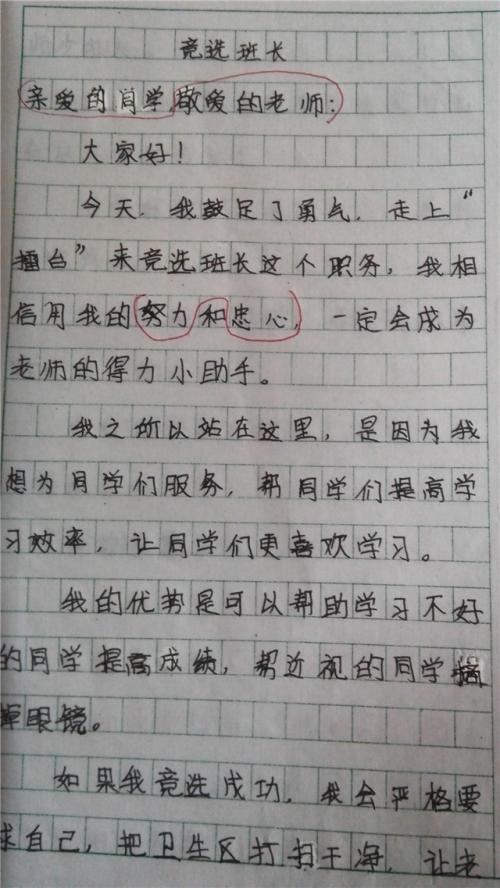 竞选班长
亲爱的同学,敬爱的老师:
大家好!
今天,我鼓足了勇气,走上“
擂台”来竞选班长这个职务,我相
信用我的努力和忠心,一定会成为
老师的得力小助手。
我之所以站在这里,是因为我
想为同学们服务,帮同学们提高学
习效率,让同学们更喜欢学习。
我的优势是可以帮助学习不好
的同学提高成绩,帮近视的同学摘
掉眼镜。
如果我竞选成功,我会严格要
求自己,把卫生区打扫干净,让老